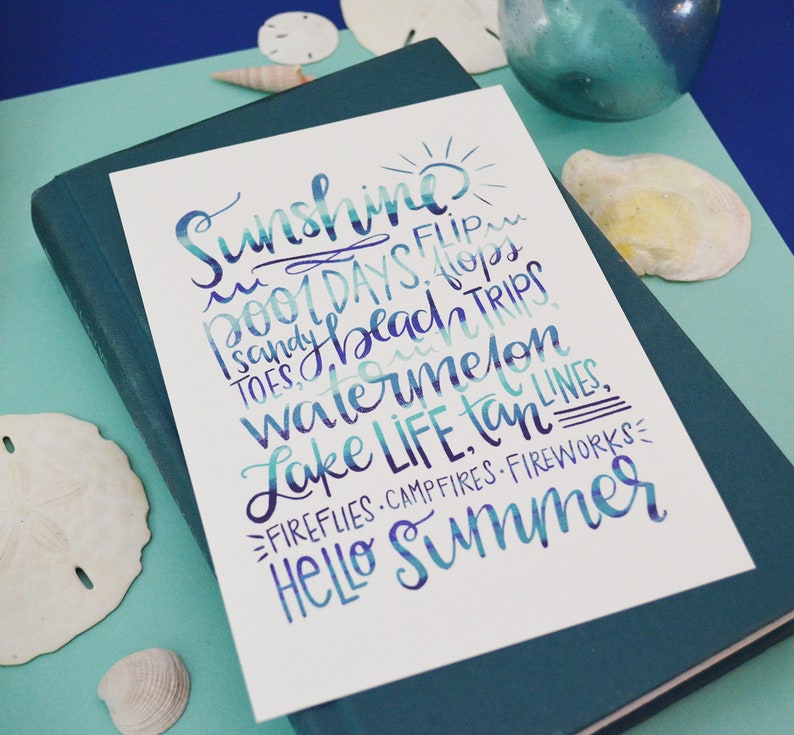 Sunshine
pool DAYS, FLIP flops
sandy TOES, beach TRIPS,
watermelon
Lake LIFE, tan LINES,
FIREFLIES · CAMPFIRES · FIREWORKS
HELLO Summer